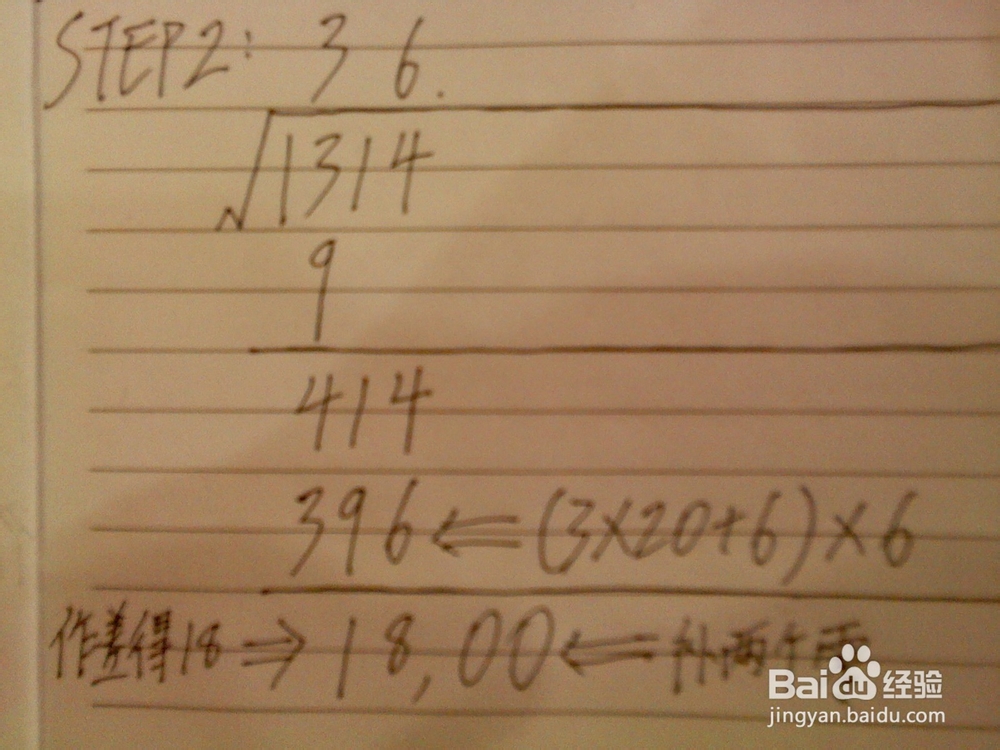 STEP2: 3 6.
√1314
9
414
396⇐(3×20+6)×6
作差得18⇒18,00⇐补两个零
Baidu经验
jingyan.baidu.com